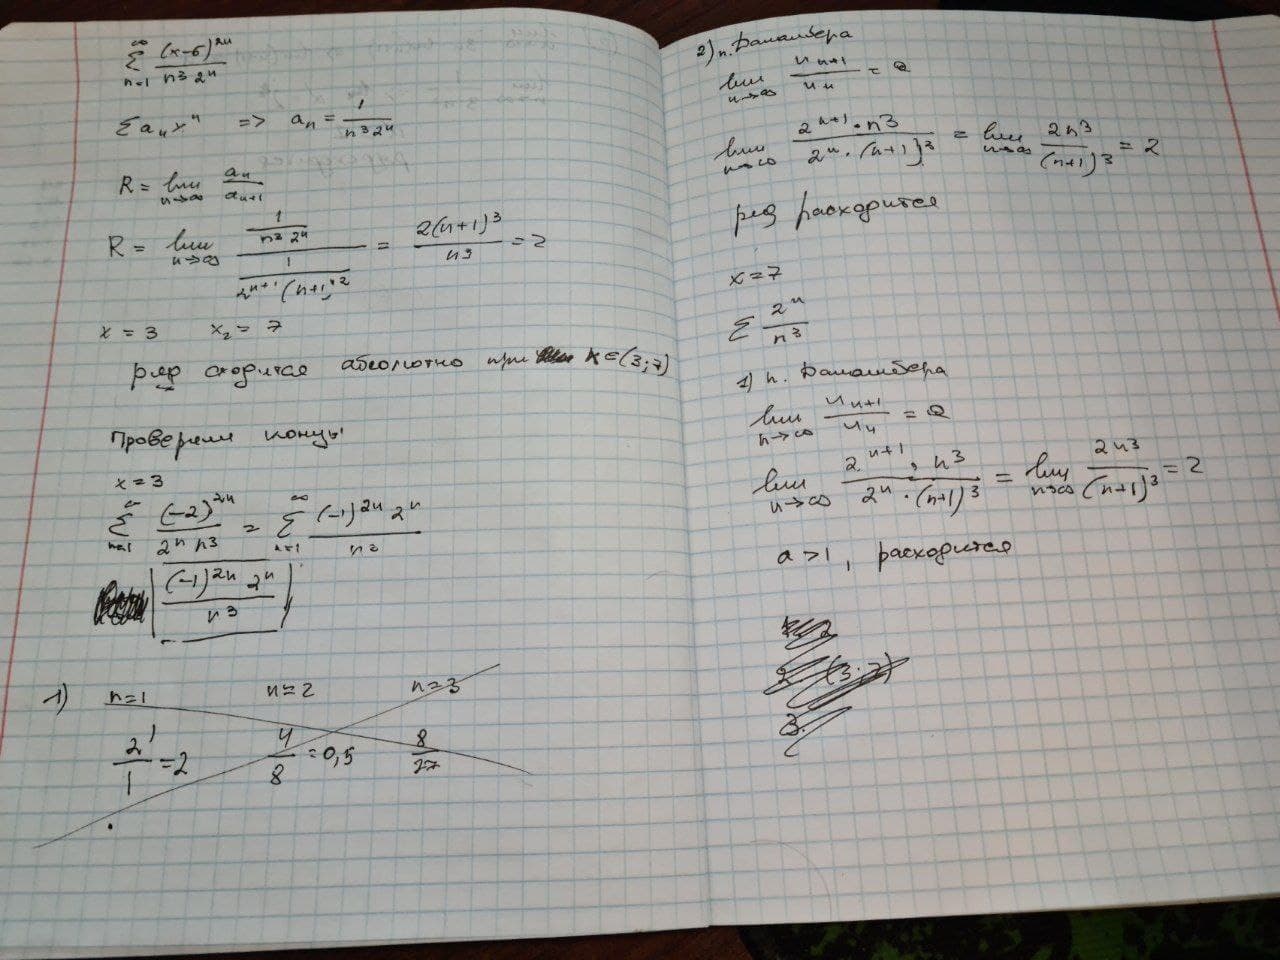 ∞
∑ (x-5)^2n / n³ 2ⁿ
n=1
∑ aₙ xⁿ => aₙ = 1 / n³ 2ⁿ
R = lim n→∞ aₙ / aₙ₊₁
R = lim n→∞ (1 / n³ 2ⁿ) / (1 / 2ⁿ⁺¹ (n+1)^2) = 2(n+1)³ / n³ = 2
x = 3 x₂ = 7
ряд сходится абсолютно при x ∈ (3; 7)
Проверим концы
x = 3
∞ ∑ n=1 (-2)^2n / 2ⁿ n³ = ∞ ∑ n=1 (-1)^2n 2ⁿ / n³
| (-1)^2n 2ⁿ / n³ |
1) n=1 n=2 n=3
2¹ / 1 = 2 4 / 8 = 0,5 8 / 27
2) п. Даламбера
lim n→∞ uₙ₊₁ / uₙ = a
lim n→∞ 2ⁿ⁺¹ · n³ / 2ⁿ · (n+1)³ = lim n→∞ 2n³ / (n+1)³ = 2
ряд расходится
x = 7
∑ 2ⁿ / n³
1) п. Даламбера
lim n→∞ uₙ₊₁ / uₙ = a
lim n→∞ 2ⁿ⁺¹ · n³ / 2ⁿ · (n+1)³ = lim n→∞ 2n³ / (n+1)³ = 2
a > 1, расходится